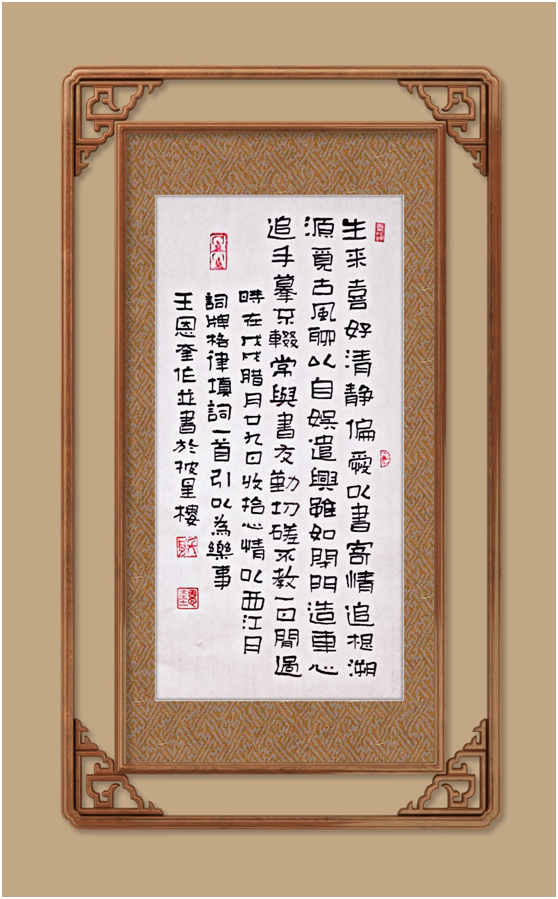 生來喜好清靜偏愛以書寄情追根溯
源覓古風聊以自娛遣興雖如閉門造車心
追手摹不輟常與書友勤切磋不教一日閒過
時在戊戌腊月廿九日收拾心情以西江月
詞牌格律填詞一首引以為樂事
王恩奎作並書於披星樓